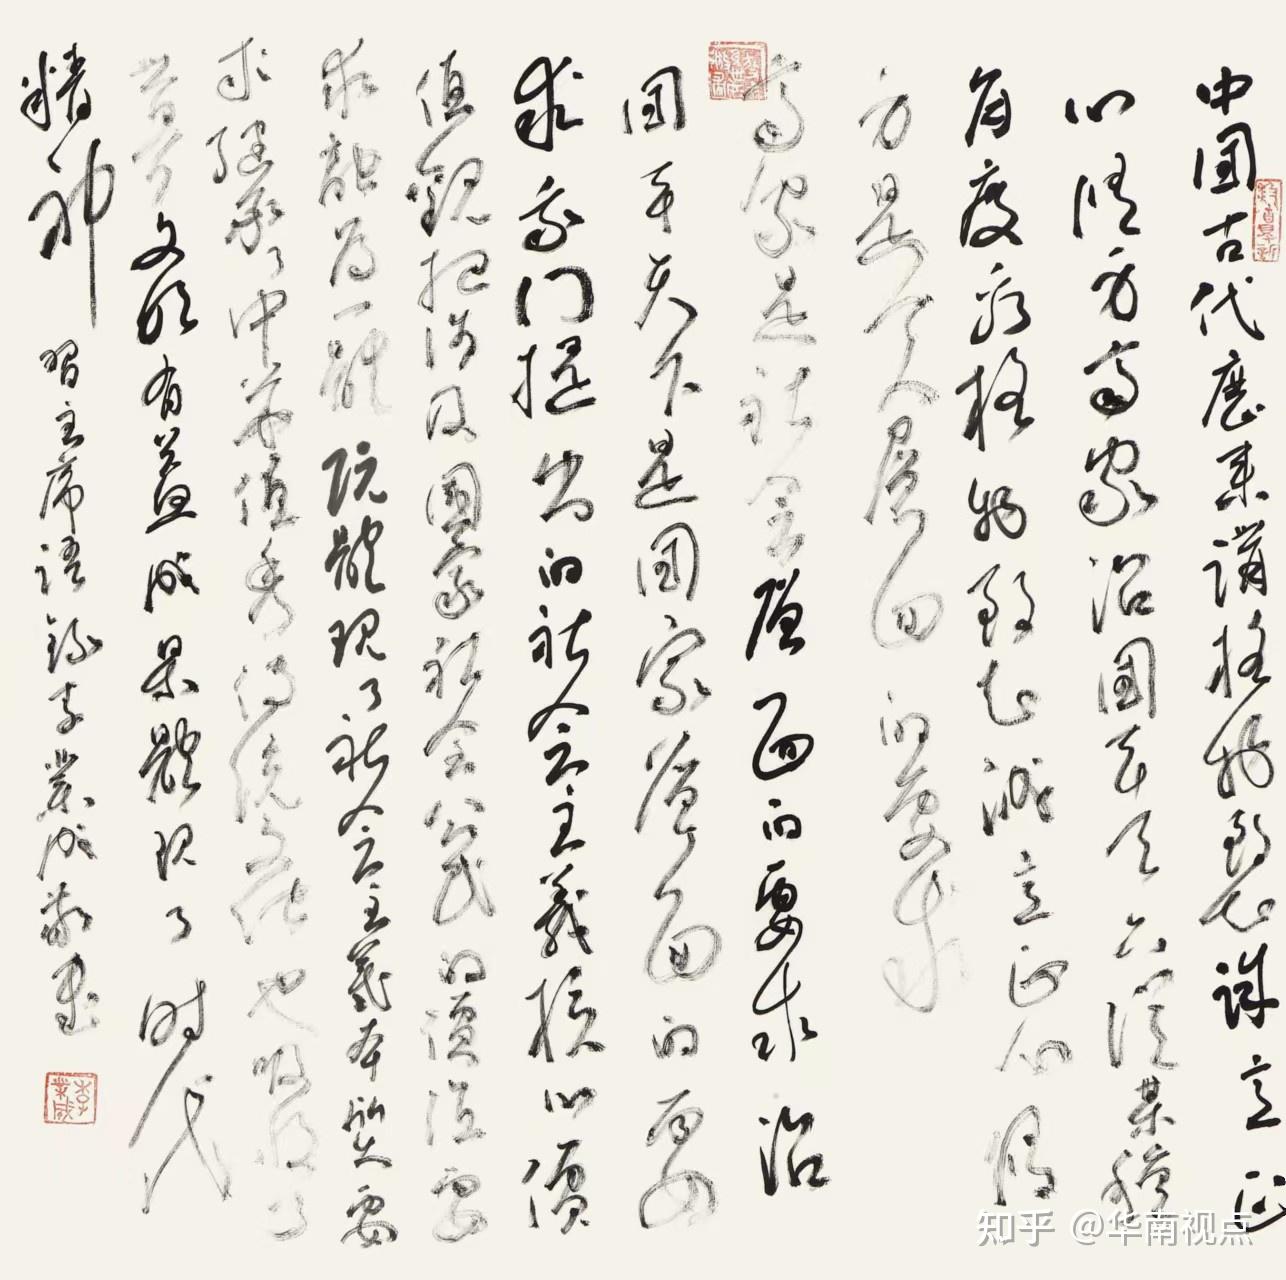 中国古代歷来講格物致知诚意正
心修身齐家治国平天下从某種
角度看格物致知诚意正心修
身是个人层面的要求
齐家是社会层面的要求治
国平天下是国家层面的要
求我们提出的社会主義核心價
值觀把涉及國家社会公民的價值要
求融为一體既體现了社会主義本质要
求继承了中华优秀传统文化也吸收了
世界文明有益成果體现了时代
精神
習主席语錄李業成敬书
李業成
知乎 @华南视点